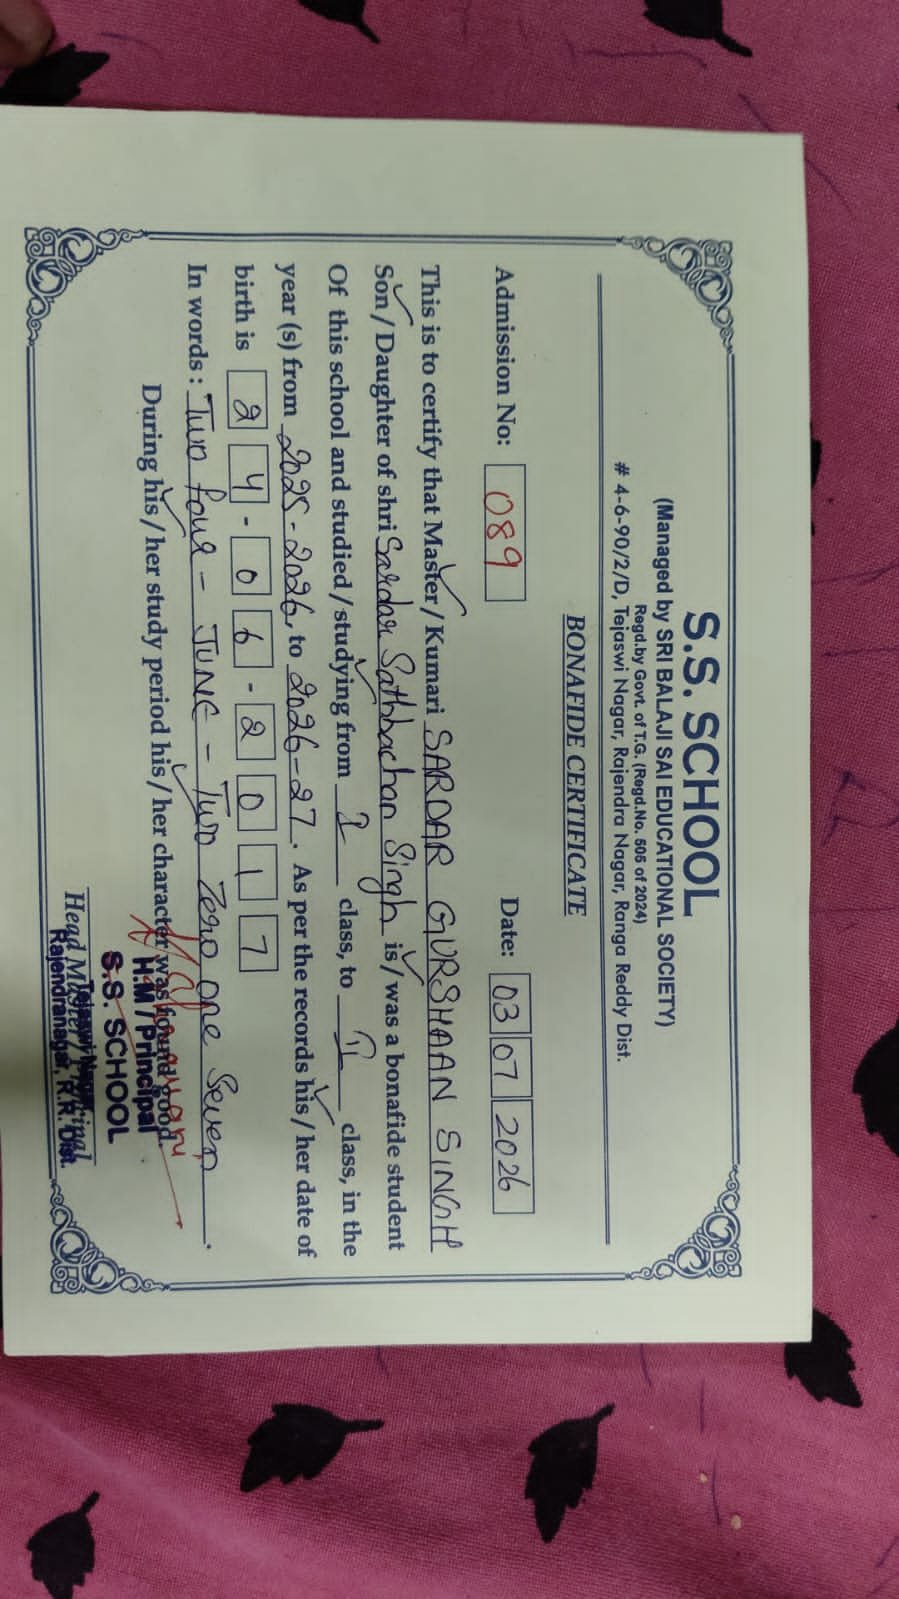 S.S. SCHOOL
(Managed by SRI BALAJI SAI EDUCATIONAL SOCIETY)
Regd.by Govt. of T.G. (Regd.No. 505 of 2024)
# 4-6-90/2/D, Tejaswi Nagar, Rajendra Nagar, Ranga Reddy Dist.
BONAFIDE CERTIFICATE
Admission No: 089 Date: 03 07 2026
This is to certify that Master / Kumari SARDAR GURSHAAN SINGH
Son / Daughter of shri Sardar Sathbachan Singh is / was a bonafide student
Of this school and studied / studying from I class, to I class, in the
year (s) from 2025-2026, to 2026-27. As per the records his / her date of
birth is 24-06-2017
In words : Two four - JUNE - Two Zero one Seven.
During his / her study period his / her character was found good.
H.M / Principal
S.S. SCHOOL
Head Master / Principal
Rajendranagar, R.R. Dist.